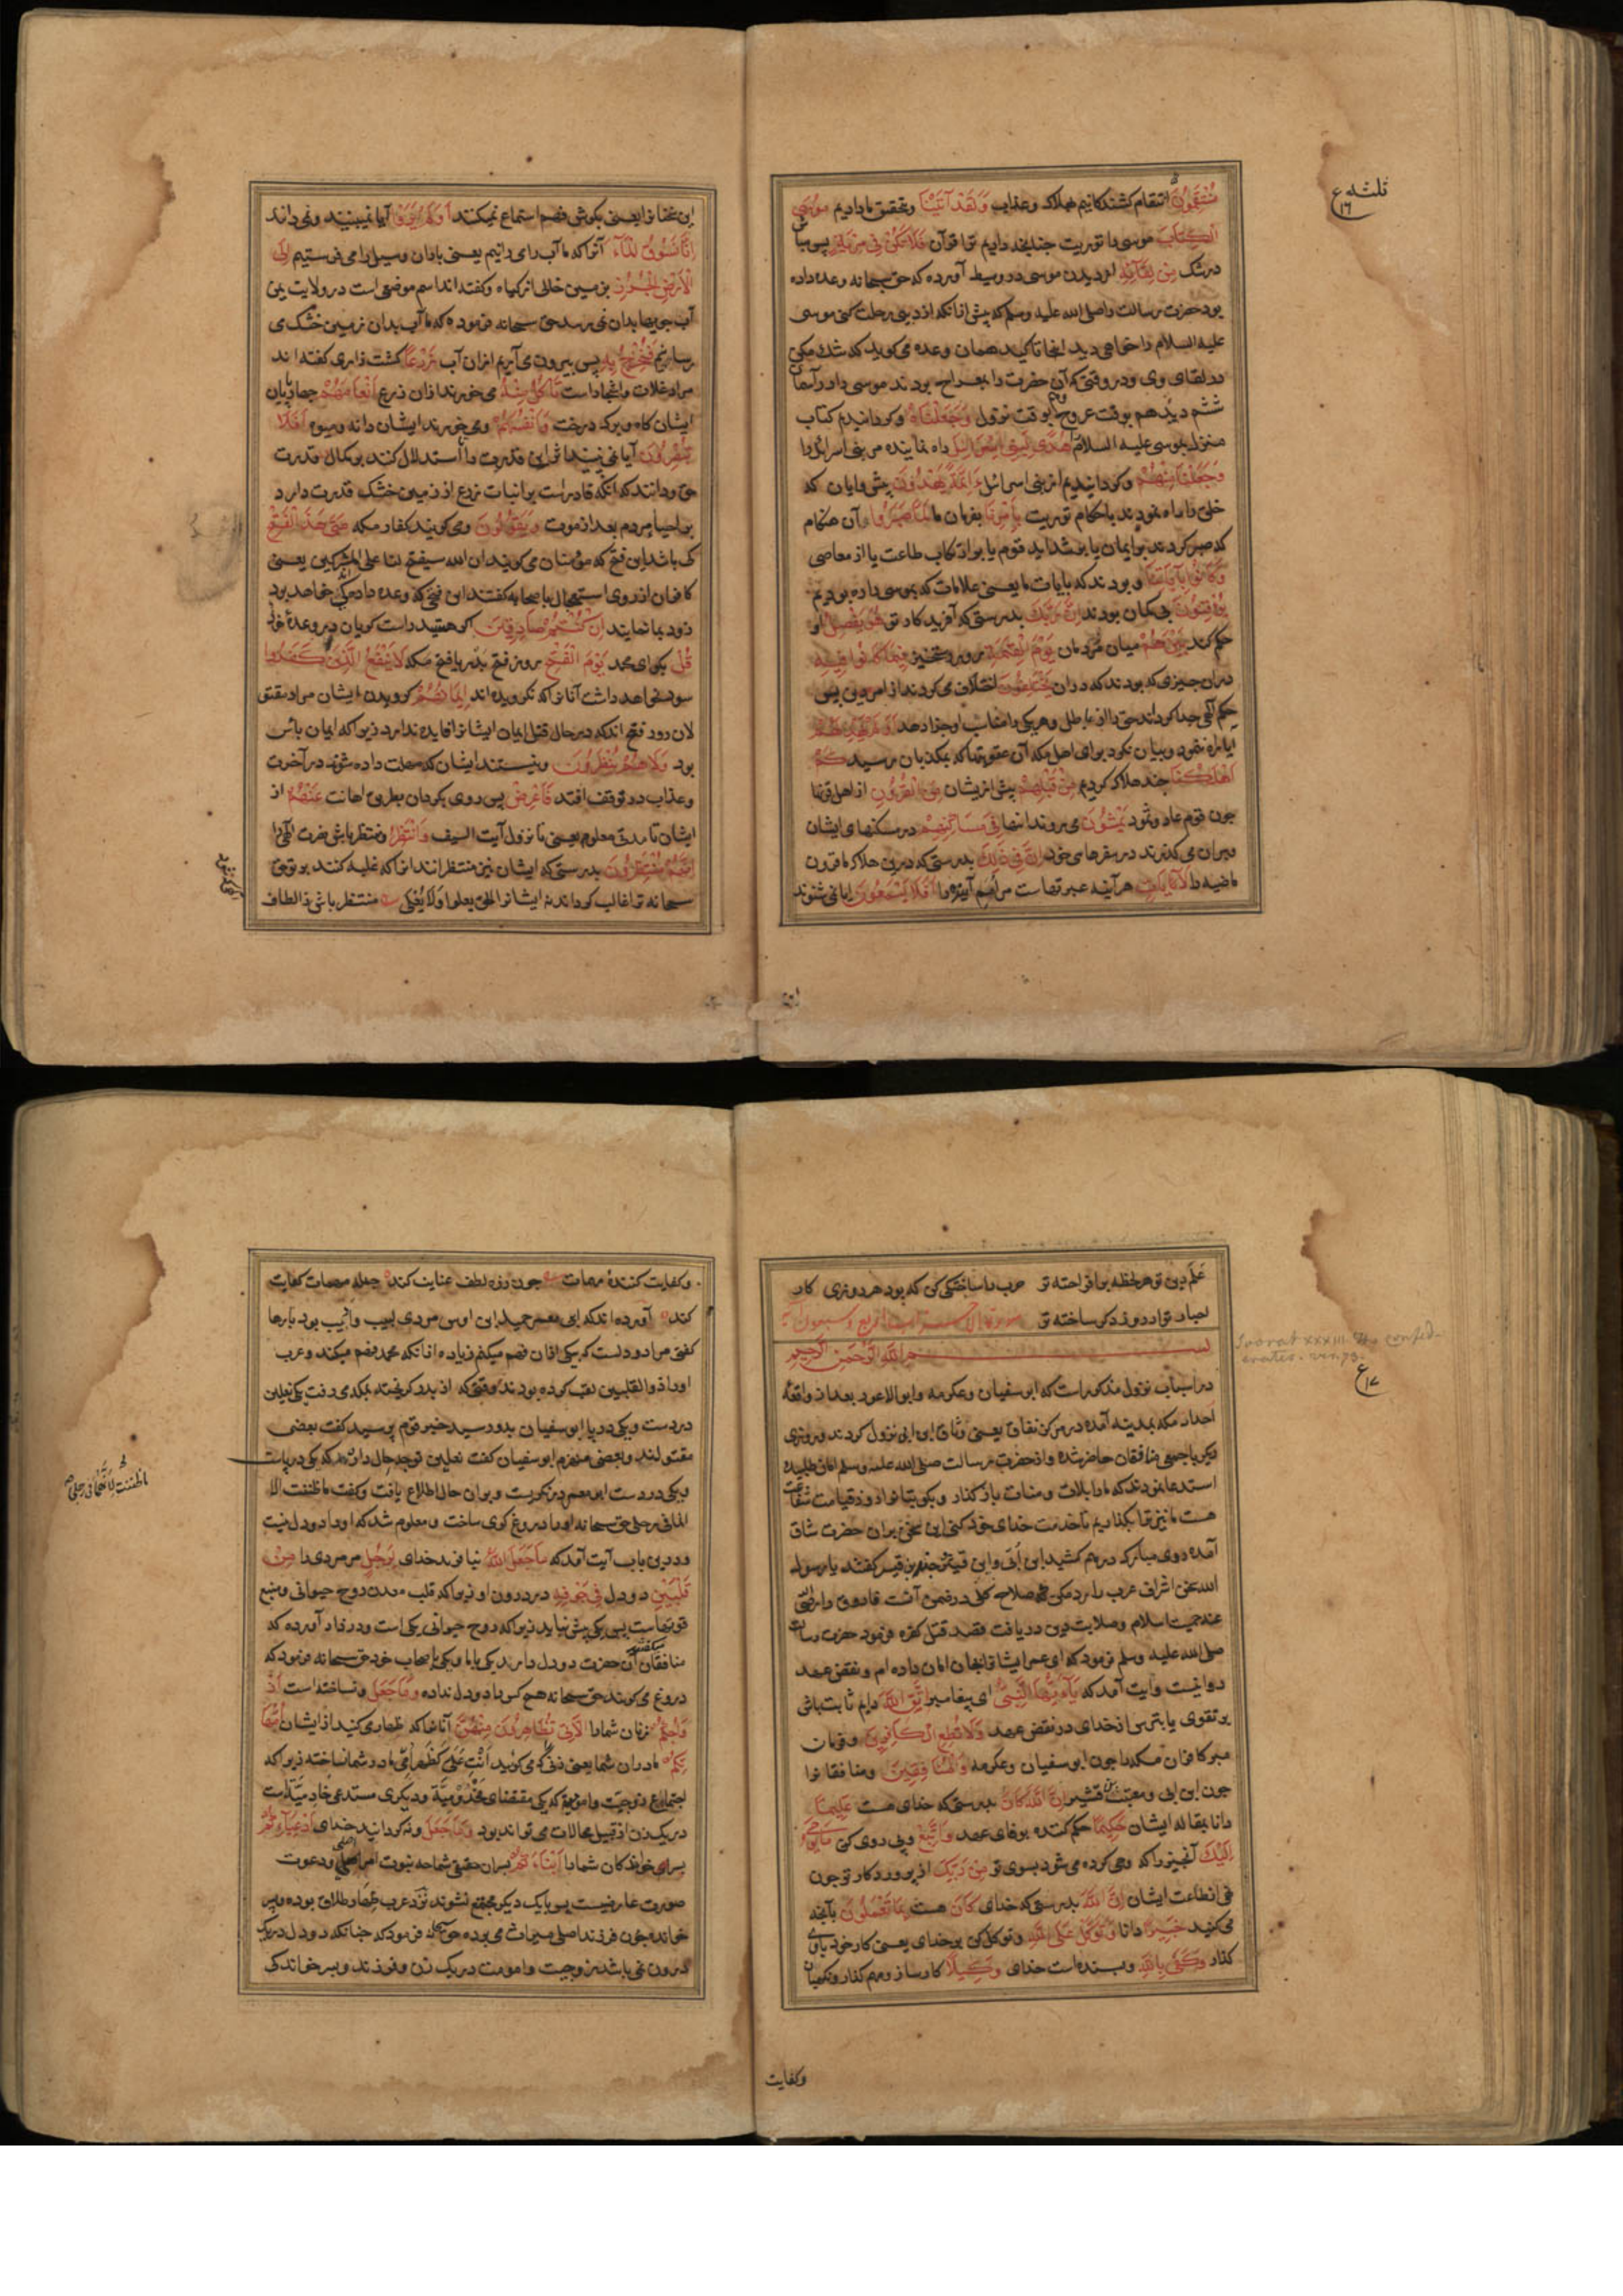 منتقمون انتقام کشندکانیم بهلاک وعذاب وَلَقَدْ آتَيْنَا وبتحقیق ما دادیم مُوسَى
الْكِتَابَ موسی را توریت چنانچه دادیم ترا قرآن فَلَا تَكُنْ فِي مِرْيَةٍ پس مباش
در شک مِنْ لِقَائِهِ از دیدن موسی در وسیط آورده که حق سبحانه وعده داده
بود حضرت رسالت را صلی الله علیه وسلم که پیش ازانکه از دنیی رحلت کنی موسی
علیه السلام را خواهی دید اینجا تاکید همان وعده می کوید که شک مکن
در لقای وی ودر وقتی که آن حضرت را بمعراج بردند موسی را در آسمان
ششم دید هم بوقت عروج وهم بوقت نزول وَجَعَلْنَاهُ وکردانیدیم کتاب
منزل بموسی علیه السلام را هُدًى لِبَنِي إِسْرَائِيلَ راه نماینده مر بنی اسرائیل را
وَجَعَلْنَا مِنْهُمْ وکردانیدیم از بنی اسرائیل أَئِمَّةً يَهْدُونَ پیش وایان که
خلق را راه نمودند باحکام توریت بِأَمْرِنَا بفرمان ما لَمَّا صَبَرُوا آن هنکام
که صبر کردند بر ایمان یا بر شداید قوم یا بر ارتکاب طاعت یا از معاصی
وَكَانُوا بِآيَاتِنَا وبودند که بایات ما یعنی علامات که بموسی داده بودیم
يُوقِنُونَ بی کمان بودند إِنَّ رَبَّكَ بدرستی که آفریدکار تو هُوَ يَفْصِلُ او
حکم کند بَيْنَهُمْ میان مردمان يَوْمَ الْقِيَامَةِ بروز رستخیز فِيمَا كَانُوا فِيهِ
دران چیزی که بودند که دران يَخْتَلِفُونَ اختلاف می کردند از امر دین پس
حکم الهی جدا کرداند حق را از باطل وهریکی را مناسب او جزا دهد أَوَلَمْ يَهْدِ لَهُمْ
آیا راه ننمود وبیان نکرد برای اهل مکه آن عقوبتها که بمکذبان رسید كَمْ
أَهْلَكْنَا چند هلاک کردیم مِنْ قَبْلِهِمْ پیش از یشان مِنَ الْقُرُونِ از اهل قرنها
چون قوم عاد وثمود يَمْشُونَ می روند اینها فِي مَسَاكِنِهِمْ در مسکنهای ایشان
ومیان می کذرند در سفرهای خود إِنَّ فِي ذَلِكَ بدرستی که درین هلاک ما قرون
ماضیه را لَآيَاتٍ هر آینه عبرتهاست مر امم آینده را أَفَلَا يَسْمَعُونَ ایا نمی شنوند
ثلثه ع
١٦
این سخنانرا یعنی بکوش فهم استماع نمیکنند أَوَلَمْ يَرَوْا آیا نمی بینند ونمی دانند
أَنَّا نَسُوقُ الْمَاءَ آنرا که ما آب رامی رانیم یعنی باران وسیل را می فرستیم إِلَى
الْأَرْضِ الْجُرُزِ بزمین خالی از کیاه وکفته اند اسم موضعی است در ولایت یمن
آب جویها بدان نمی رسد حق سبحانه فرموده که ما آب بدان زمین خشک می
رسانیم فَنُخْرِجُ بِهِ پس بیرون می آریم ازان آب زَرْعًا کشت زاری کفته اند
مراد غلات واشجار است تَأْكُلُ مِنْهُ می خورند ازان زرع أَنْعَامُهُمْ چهارپایان
ایشان کاه وبرک درخت وَأَنْفُسُهُمْ ومی خورند ایشان دانه ومیوه أَفَلَا
يُبْصِرُونَ آیا نمی بینند اثر این قدرت را تا استدلال کنند بر کمال قدرت
حق ودانند که آنکه قادر است بر انبات زرع از زمین خشک قدرت دارد
بر احیا مردم بعد از موت وَيَقُولُونَ ومی کویند کفار مکه مَتَى هَذَا الْفَتْحُ
کی باشد این فتح که مؤمنان می کویند ان الله سیفتح لنا علی المشرکین یعنی
کافران از روی استعجال باصحابه کفتند این فتح که وعده داده کی خواهد بود
زود بما نمایند إِنْ كُنْتُمْ صَادِقِينَ اکر هستید راست کویان در وعدهٔ خود
قُلْ بکو ای محمد يَوْمَ الْفَتْحِ بروز فتح بدر یا فتح مکه لَا يَنْفَعُ الَّذِينَ كَفَرُوا
سود نخواهد داشت آنانرا که نکرویده اند إِيمَانُهُمْ کرویدن ایشان مراد مقتو
لان روز فتح اند که در حال قتل ایمان ایشانرا فایده ندارد زیرا که ایمان بأس
بود وَلَا هُمْ يُنْظَرُونَ ونیستند ایشان که مهلت داده شوند در آخرت
وعذاب در توقف افتد فَأَعْرِضْ پس روی بکردان بطریق اهانت عَنْهُمْ از
ایشان تا مدتی معلوم یعنی تا نزول آیت السیف وَانْتَظِرْ ومنتظر باش نصرت الهی را
إِنَّهُمْ مُنْتَظِرُونَ بدرستی که ایشان نیز منتظرانند انرا که غلبه کنند بر تو حق
سبحانه ترا غالب کرداند نه ایشانرا الحق یعلوا ولا یعلی منتظر باش ز الطاف
علم دین تو هر لحظه بر افراخته تر حرب را سابختکی کن که بود هر روزی کار
احباب تو از روز دکر ساخته تر سورة الاحزاب اربع وسبعون آية
بسم الله الرحمن الرحيم
در اسباب نزول مذکور است که ابو سفیان وعکرمه وابو الاعور بعد از واقعهٔ
احد از مکه بمدینه آمده در مرکز نفاق یعنی وثاق ابن ابی نزول کردند وروزی
دیکر با جمعی منافقان حاضر شده واز حضرت رسالت صلی الله علیه وسلم امان طلبیده
استدعا نمودند که ما را بالات ومنات باز کذار وبکو بتانرا در روز قیامت شفاعت
هست ما نیز ترا بکذاریم تا خدمت خدای خود کنی این سخن بران حضرت شاق
آمده روی مبارک در هم کشید ابن ابی وابن قیس کفتند یا رسول
الله سخن اشراف عرب را رد مکن که صلاح کلی در ضمن آنست فاروق را رضی الله
عنه حمیت اسلام وصلابت دین دریافت قصد قتل کفره فرمود حضرت رسالت
صلی الله علیه وسلم فرمود که ای عمر ایشانرا بجان امان داده ام ونقض عهد
روا نیست وآیت آمد که يَا أَيُّهَا النَّبِيُّ ای پیغامبر اتَّقِ اللَّهَ دایم ثابت باش
بر تقوی یا بترس از خدای در نقض عهد وَلَا تُطِعِ الْكَافِرِينَ وفرمان
مبر کافران مکه را چون ابو سفیان وعکرمه وَالْمُنَافِقِينَ ومنافقانرا
چون ابن ابی ومعتب بن قشیر إِنَّ اللَّهَ كَانَ بدرستی که خدای هست عَلِيمًا
دانا بمقاله ایشان حَكِيمًا حکم کننده بوفای عهد وَاتَّبِعْ وپی روی کن مَا يُوحَى
إِلَيْكَ آنچیز را که وحی کرده می شود بسوی تو مِنْ رَبِّكَ از پروردکار تو چون
نهی از طاعت ایشان إِنَّ اللَّهَ بدرستی که خدای كَانَ هست بِمَا تَعْمَلُونَ بآنچه
می کنید خَبِيرًا دانا وَتَوَكَّلْ عَلَى اللَّهِ وتوکل کن بر خدای یعنی کار خود باوی
کذار وَكَفَى بِاللَّهِ وبسنده است خدای وَكِيلًا کارساز ومهم کذار ونکهبان
Soorat xxxiii. The confed-
erates. ver. 73.
ع
١٧
وکفایت
وکفایت کنندهٔ مهمات چون دزه لطف عنایت کند جمله مهمات کفایت
کند آورده اند که ابی معمر حمید ابن اوس مردی لبیب واریب بود بارها
کفتی مرا دو دلست که بیکی ازان فهم میکنم زیاده ازانکه محمد فهم میکند وعرب
او را ذو القلبین لقب کرده بودند وقتی که از بدر کریخته بمکه می رفت یک نعلین
در دست ویکی در پا ابو سفیان بدو رسید خبر قوم پرسید کفت بعضی
مقتولند وبعضی منهزم ابو سفیان کفت نعلین تو چه حال دارند که یکی در پاست
ویکی در دست ابو معمر در نکریست وبران حال اطلاع یافت وکفت ما ظننت الا
انها فی رجلی حق سبحانه او را دروغ کوی ساخت ومعلوم شد که او را دو دل نیست
ودرین باب آیت آمد که مَا جَعَلَ اللَّهُ نیافرید خدای لِرَجُلٍ مر مردی را مِنْ
قَلْبَيْنِ دو دل فِي جَوْفِهِ در درون او زیرا که قلب معدن روح حیوانی ومنبع
قوتهاست پس یکی بیش نباید زیرا که روح حیوانی یکی است ودر زاد آورده که
منافقان میکفتند آن حضرت دو دل دارند یکی باما ویکی باصحاب خود حق سبحانه فرمود که
دروغ می کویند حق سبحانه هیچ کس را دو دل نداده وَمَا جَعَلَ ونساخته است أَزْ
وَاجَكُمُ زنان شما را اللَّائِي تُظَاهِرُونَ مِنْهُنَّ آنانرا که ظهار می کنید از ایشان أُمَّهَا
تِكُمْ مادران شما یعنی زنی که می کوئید انت علی کظهر امی مادر شما نساخته زیرا که
اجتماع زوجیت وامومیة که یکی مقتضای مخدومیة ودیکری مستدعی خادمیة است
در یک زن از قبیل محالات می تواند بود وَمَا جَعَلَ ونه کردانید خدای أَدْعِيَاءَكُمْ
پسر خواندکان شما را أَبْنَاءَكُمْ پسران حقیقی شما چه بنوت امر اصلی ودعوت
صورت عارضیست پس بایک دیکر مجتمع نشوند نزد عرب ظهار طلاق بوده وپسر
خوانده چون فرزند اصلی میراث می برده حق سبحانه فرمود که چنانکه دو دل در یک
درون نمی باشد زوجیت وامومت در یک زن وفرزند وپسر خواندکی
ما ظننت الا انها فی رجلی